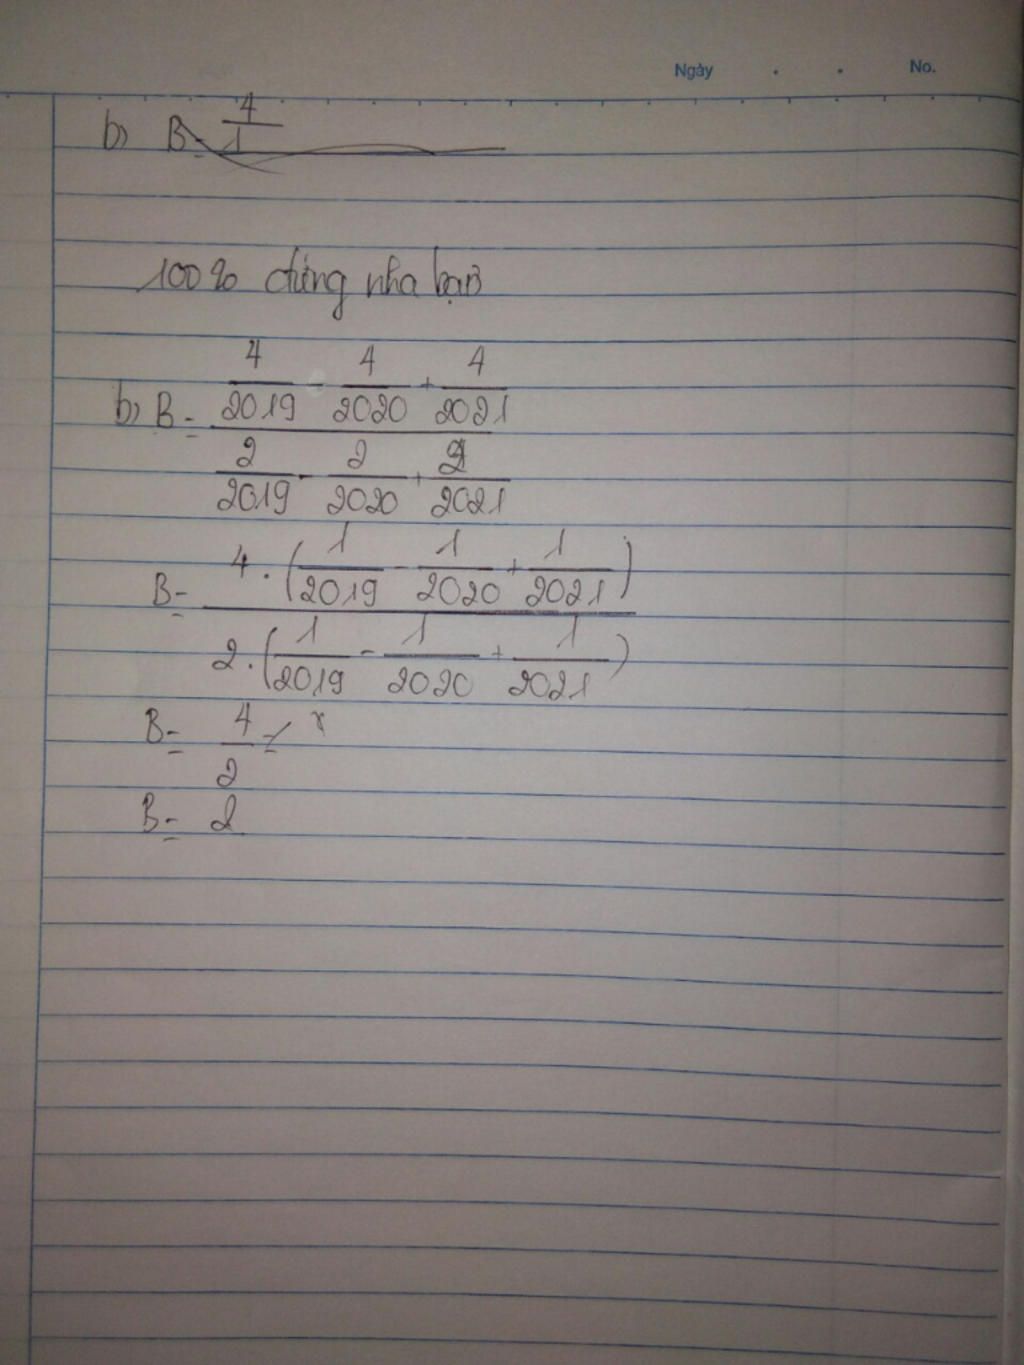 Ngày . . No.
b) B = 4/1
100% đúng nha bạn
b) B = (4/2019 - 4/2020 + 4/2021) / (2/2019 - 2/2020 + 2/2021)
B = 4.(1/2019 - 1/2020 + 1/2021) / 2.(1/2019 - 1/2020 + 1/2021)
B = 4/2 =
B = 2